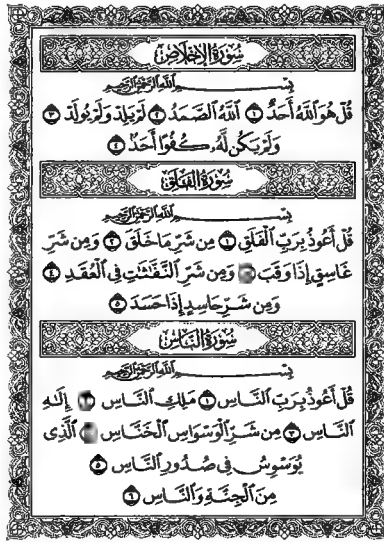 سُورَةُ الإِخْلَاصِ
بِسْمِ ٱللَّهِ ٱلرَّحْمَٰنِ ٱلرَّحِيمِ
قُلْ هُوَ ٱللَّهُ أَحَدٌ ١ ٱللَّهُ ٱلصَّمَدُ ٢ لَمْ يَلِدْ وَلَمْ يُولَدْ ٣
وَلَمْ يَكُن لَّهُۥ كُفُوًا أَحَدٌۢ ٤
سُورَةُ الْفَلَقِ
بِسْمِ ٱللَّهِ ٱلرَّحْمَٰنِ ٱلرَّحِيمِ
قُلْ أَعُوذُ بِرَبِّ ٱلْفَلَقِ ١ مِن شَرِّ مَا خَلَقَ ٢ وَمِن شَرِّ
غَاسِقٍ إِذَا وَقَبَ وَمِن شَرِّ ٱلنَّفَّٰثَٰتِ فِى ٱلْعُقَدِ ٤
وَمِن شَرِّ حَاسِدٍ إِذَا حَسَدَ ٥
سُورَةُ النَّاسِ
بِسْمِ ٱللَّهِ ٱلرَّحْمَٰنِ ٱلرَّحِيمِ
قُلْ أَعُوذُ بِرَبِّ ٱلنَّاسِ ١ مَلِكِ ٱلنَّاسِ إِلَٰهِ
ٱلنَّاسِ ٣ مِن شَرِّ ٱلْوَسْوَاسِ ٱلْخَنَّاسِ ٱلَّذِى
يُوَسْوِسُ فِى صُدُورِ ٱلنَّاسِ ٥
مِنَ ٱلْجِنَّةِ وَٱلنَّاسِ ٦